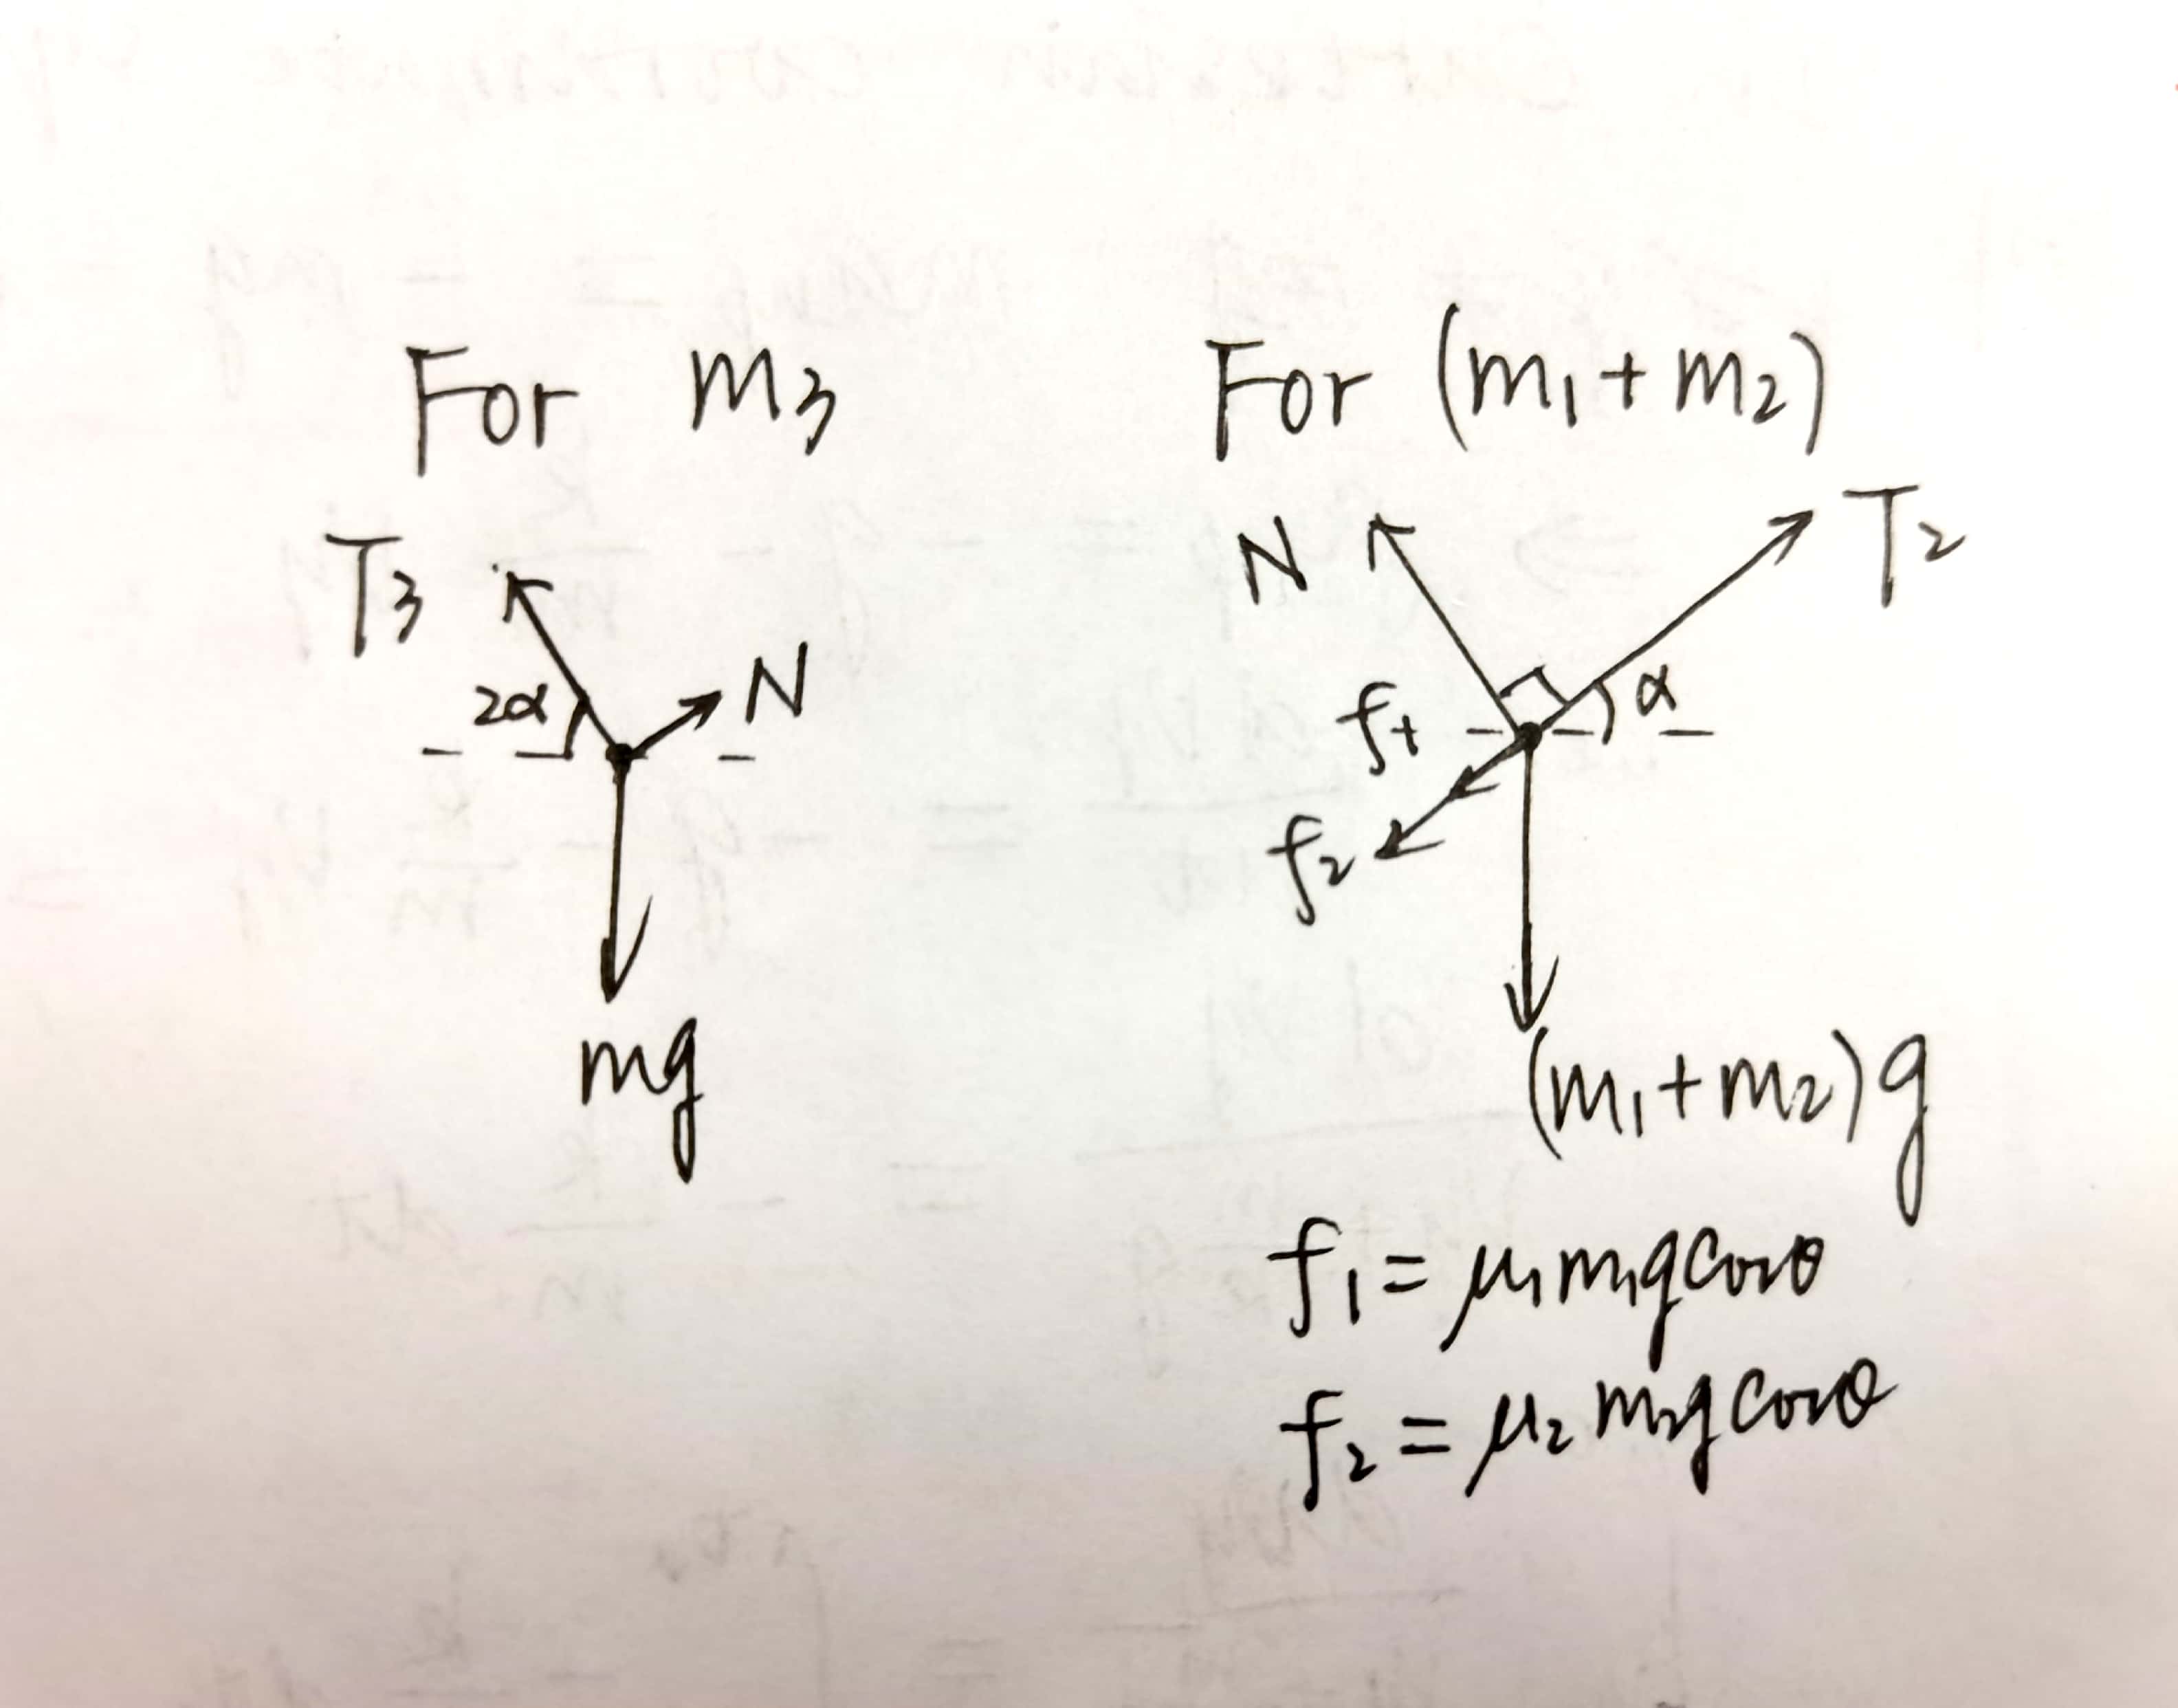 For m₃
T₃
2α
N
mg
For (m₁+m₂)
N
T₂
α
f₁
f₂
(m₁+m₂)g
f₁ = μ₁m₁g cosθ
f₂ = μ₂m₂g cosθ